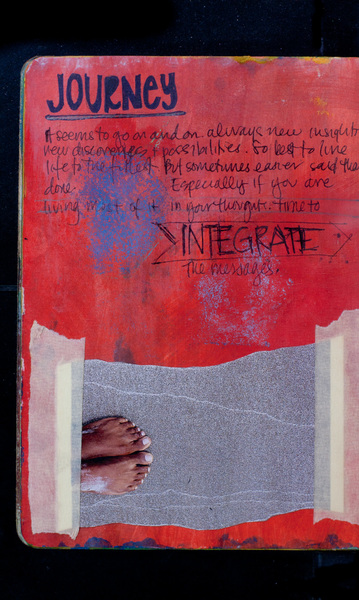 JOURNEY
It seems to go on and on. always new insight
new discoveries & possibilities. So best to live
life to the fullest. But sometimes easier said tha
done. Especially if you are
living most of it in your thoughts. time to
INTEGRATE
the messages.